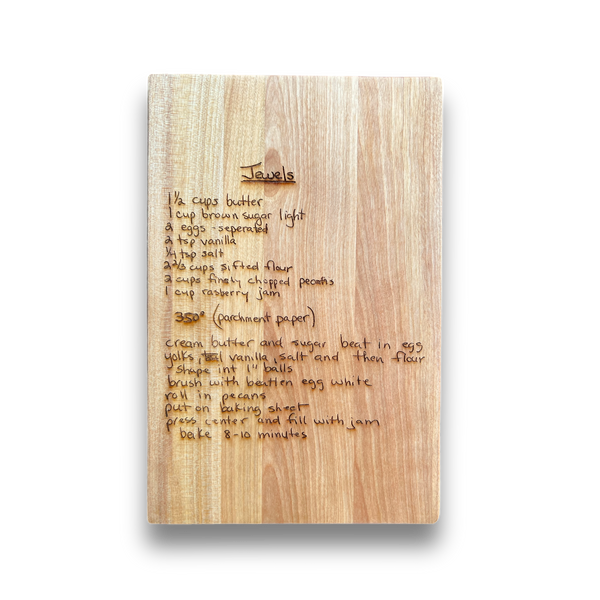 Jewels
1 1/2 cups butter
1 cup brown sugar light
2 eggs - seperated
2 tsp vanilla
1/4 tsp salt
2 2/3 cups sifted flour
2 cups finely chopped pecans
1 cup rasberry jam
350° (parchment paper)
cream butter and sugar beat in egg
yolks, vanilla, salt and then flour
shape int 1" balls
brush with beatten egg white
roll in pecans
put on baking sheet
press center and fill with jam
bake 8-10 minutes